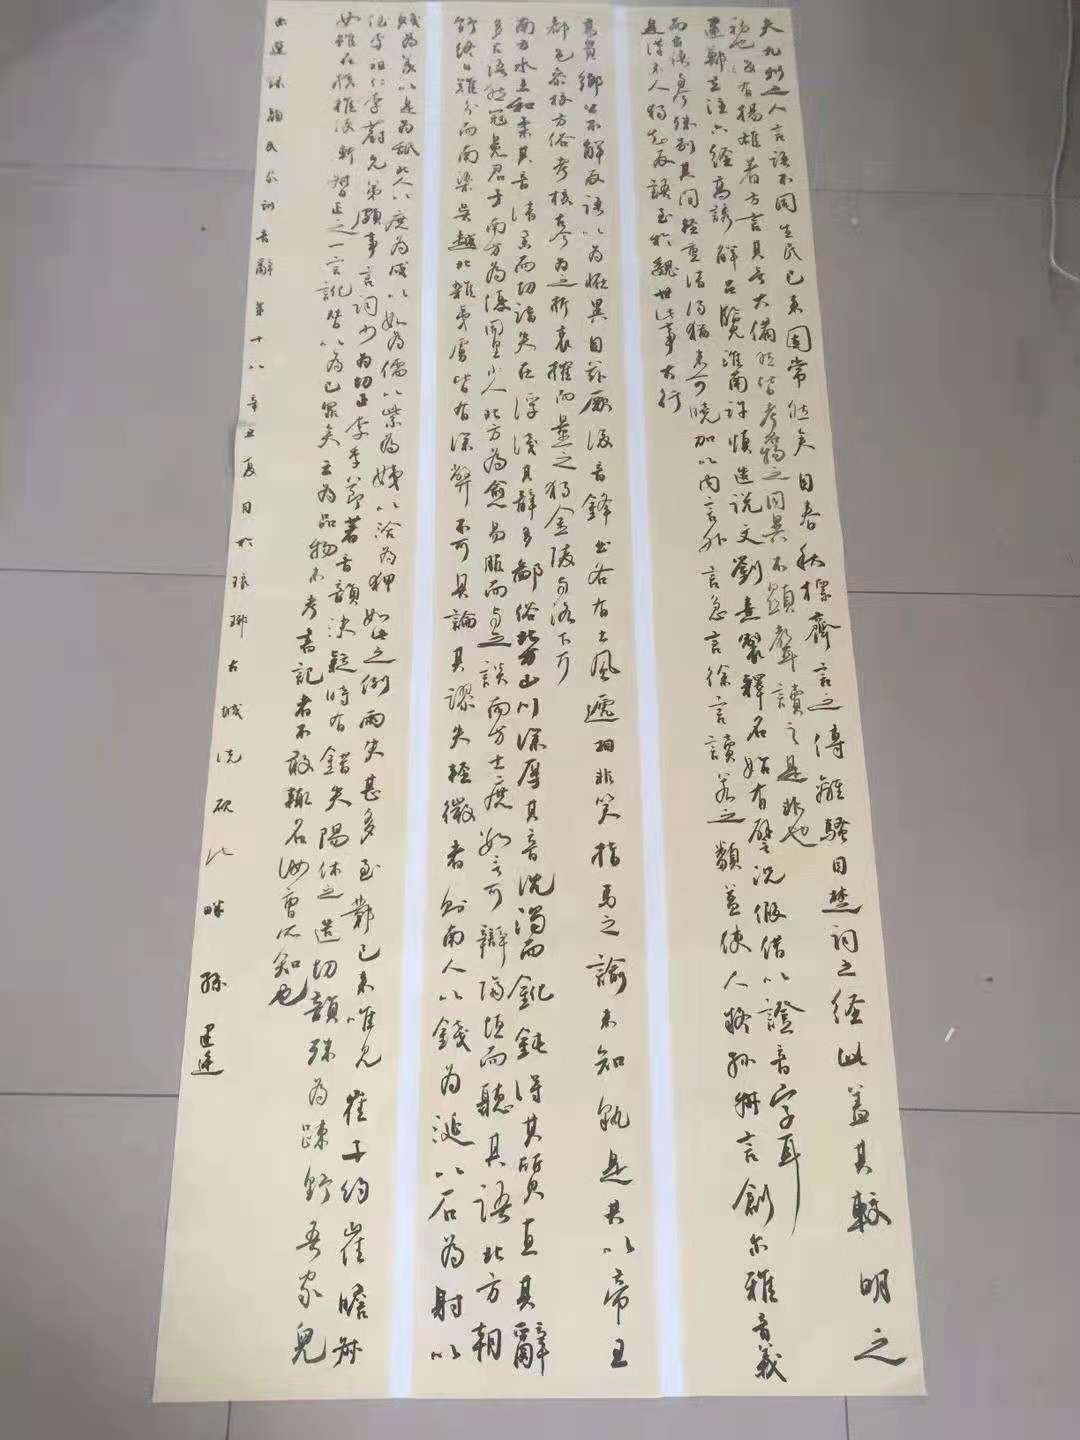 夫九州之人言語不同生民已來固常然矣自春秋摽齊言之傳離騷目楚詞之經此蓋其較明之
初也後有揚雄著方言其言大備然皆考名物之同異不顯聲讀之是非也
逮鄭玄注六經高誘解呂覽淮南許慎造說文劉熹製釋名始有譬況假借以證音字耳
而古語與今殊別其間輕重清濁猶未可曉加以內言外言急言徐言讀若之類益使人疑孫叔言創爾雅音義
是漢末人獨知反語至於魏世此事大行
高貴鄉公不解反語以為怪異自茲厥後音鋒出各有土風遞相非笑指馬之諭未知孰是共以帝王
都邑參校方俗考核古今為之折衷搉而量之獨金陵與洛下耳
南方水土和柔其音清舉而切詣失在浮淺其辭多鄙俗北方山川深厚其音沈濁而鈋鈍得其質直其辭
多古語然冠冕君子南方為優閭里小人北方為愈易服而與之談南方士庶數言可辯隔垣而聽其語北方朝
野終日難分而南染吳越北雜夷虜皆有深弊不可具論其謬失輕微者則南人以錢為涎以石為射以
賤為羨以是為舐北人以庶為戍以如為儒以紫為姊以洽為狎如此之例兩失甚多至鄴已來唯見崔子約崔瞻叔
侄李祖仁李蔚兄弟頗事言詞少為切正李季節著音韻決疑時有錯失陽休之造切韻殊為疎野吾家兒
女雖在孩稚便漸督正之一言訛替以為己罪矣云為品物不考書記者不敢輒名汝曹所知也
顏氏家訓音辭第十八辛丑夏日於琅琊古城洗硯池畔孫運逢